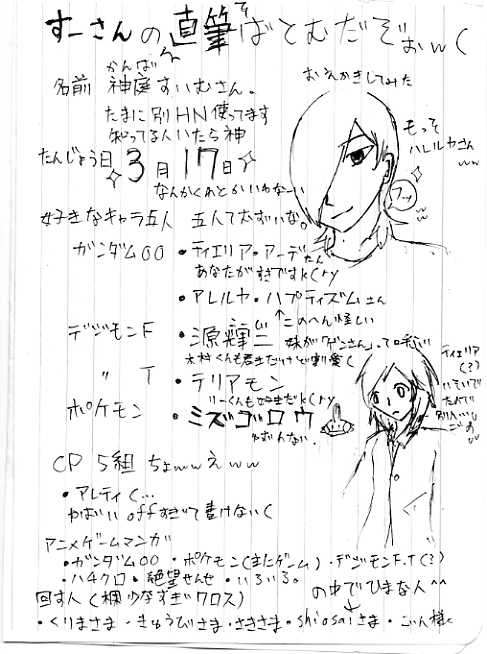 すーさんの直筆ばとむだぞぉw(
かんば
名前 神庭すいむさん。
たまに別HN使ってます
知ってる人いたら神
たんじょう日 3月17日
なんかくれとかいわなーい
おえかきしてみた
もっそ
ハレルヤさん
ww
フッ
好きなキャラ五人 五人て太すいな。
ガンダム00 ・ティエリア・アーデたん
あなたがすきですk(ry
・アレルヤ・ハプティズムさん
↑このへん怪しい
デジモンF ・源輝二 妹が「ゲンさん」って呼ぶ
木村くんも君主だけど割愛(
〃 T ・テリアモン
りーくんも好きだk(ry
ポケモン ・ミズゴロウ
ティエリア
(?)
CP 5組 ちょwwえww
・アレティ(…
やばいいoffすぎて書けない(
アニメゲームマンガ
・ガンダム00 ・ポケモン(またゲーム) ・デジモンF.T(?)
・ハチクロ ・絶望せんせ ・いろいろ。
回す人(欄少なすぎワロス) の中でひまな人^^
・くりまさま ・きゅうびさま ・さきさま ・shiosaiさま ・ごん様<